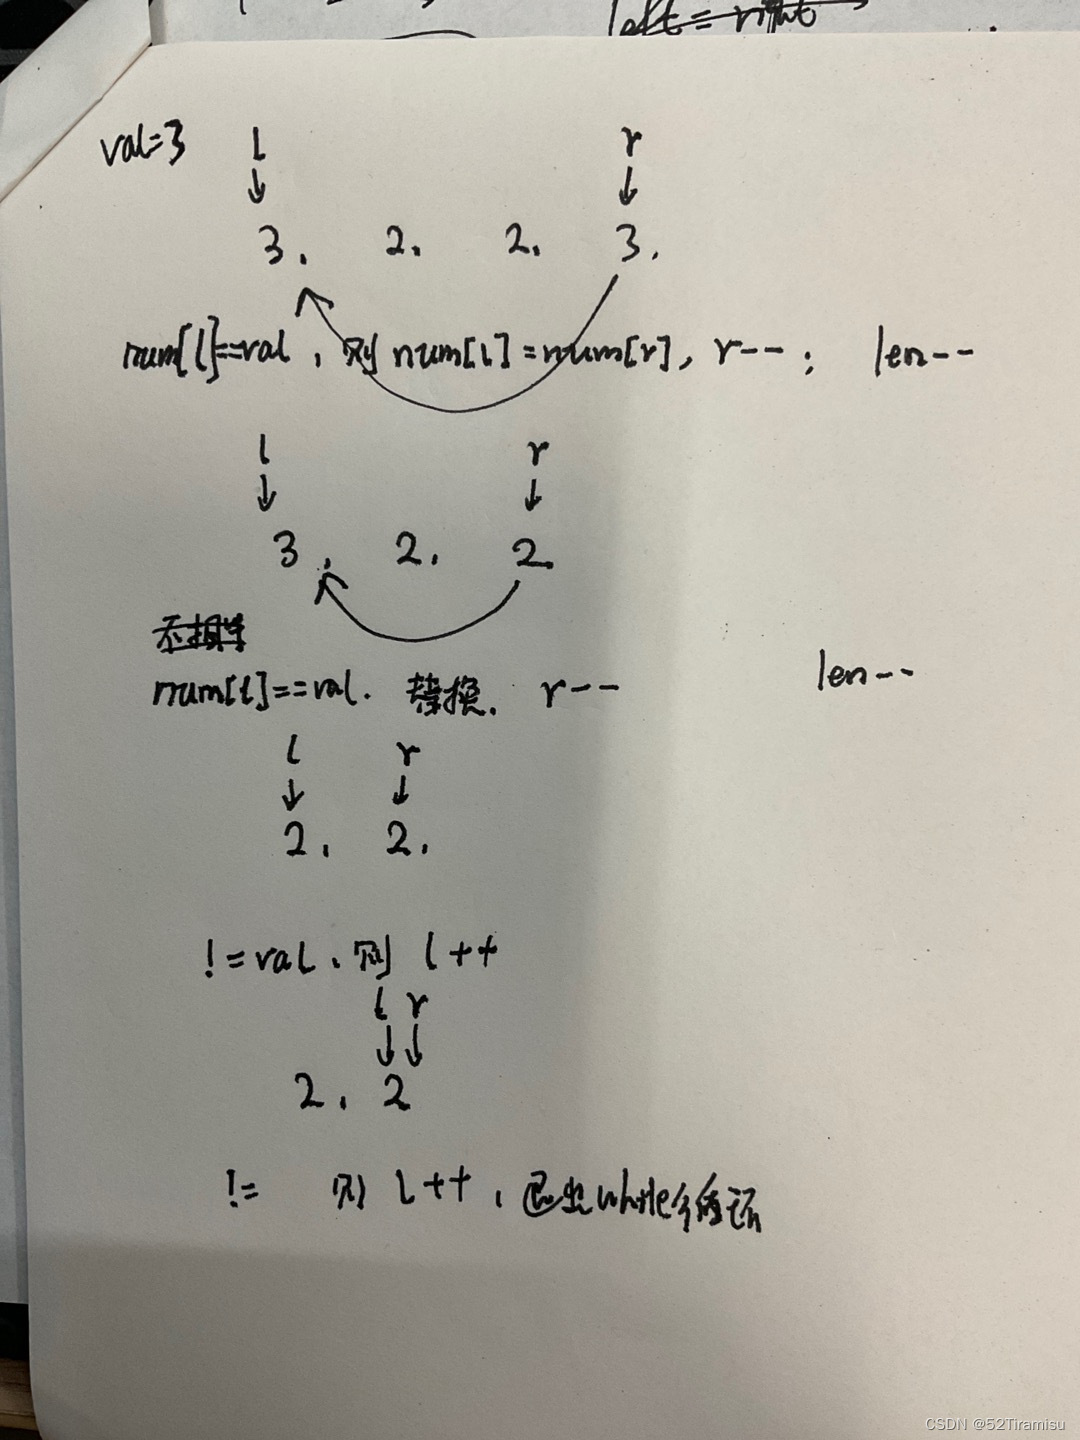 left = right
val=3 l r
3. 2. 2. 3.
num[l]==val, 则 num[l]=num[r], r--; len--
l r
3. 2. 2.
num[l]==val. 替换. r-- len--
l r
2, 2.
!=val, 则 l++
l r
2, 2
!= 则 l++, 退出while循环
CSDN @52Tiramisu